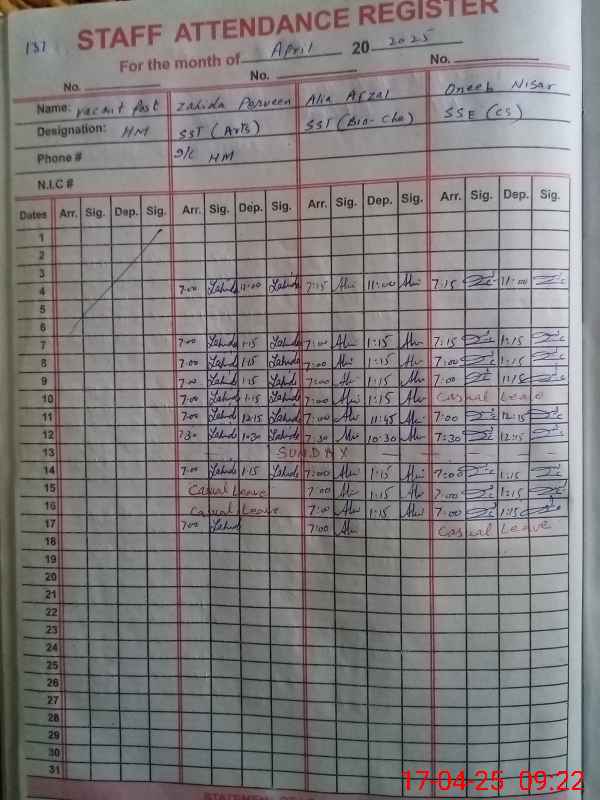 131
STAFF ATTENDANCE REGISTER
For the month of April 20 2025
No. No. No.
Name: vacant Post Zahida Parveen Alia Afzal Oneeb Nisar
Designation: HM SST (Arts) SST (Bio-Che) SSE (CS)
Phone # I/C HM
N.I.C #
Dates Arr. Sig. Dep. Sig. Arr. Sig. Dep. Sig. Arr. Sig. Dep. Sig. Arr. Sig. Dep. Sig.
1
2
3
4 7:00 Zahida 11:00 Zahida 7:15 Alia 11:00 Alia 7:15 11:00
5
6
7 7:00 Zahida 1:15 Zahida 7:00 Alia 1:15 Alia 7:15 1:15
8 7:00 Zahida 1:15 Zahida 7:00 Alia 1:15 Alia 7:00 1:15
9 7:00 Zahida 1:15 Zahida 7:00 Alia 1:15 Alia 7:00 1:15
10 7:00 Zahida 1:15 Zahida 7:00 Alia 1:15 Alia Casual Leave
11 7:00 Zahida 12:15 Zahida 7:00 Alia 11:45 Alia 7:00 12:15
12 7:30 Zahida 10:30 Zahida 7:30 Alia 10:30 Alia 7:30 12:15
13 SUNDAY
14 7:00 Zahida 1:15 Zahida 7:00 Alia 1:15 Alia 7:00 1:15
15 Casual Leave 7:00 Alia 1:15 Alia 7:00 1:15
16 Casual Leave 7:00 Alia 1:15 Alia 7:00 1:15
17 7:00 Zahida 7:00 Alia Casual Leave
18
19
20
21
22
23
24
25
26
27
28
29
30
31
17-04-25 09:22